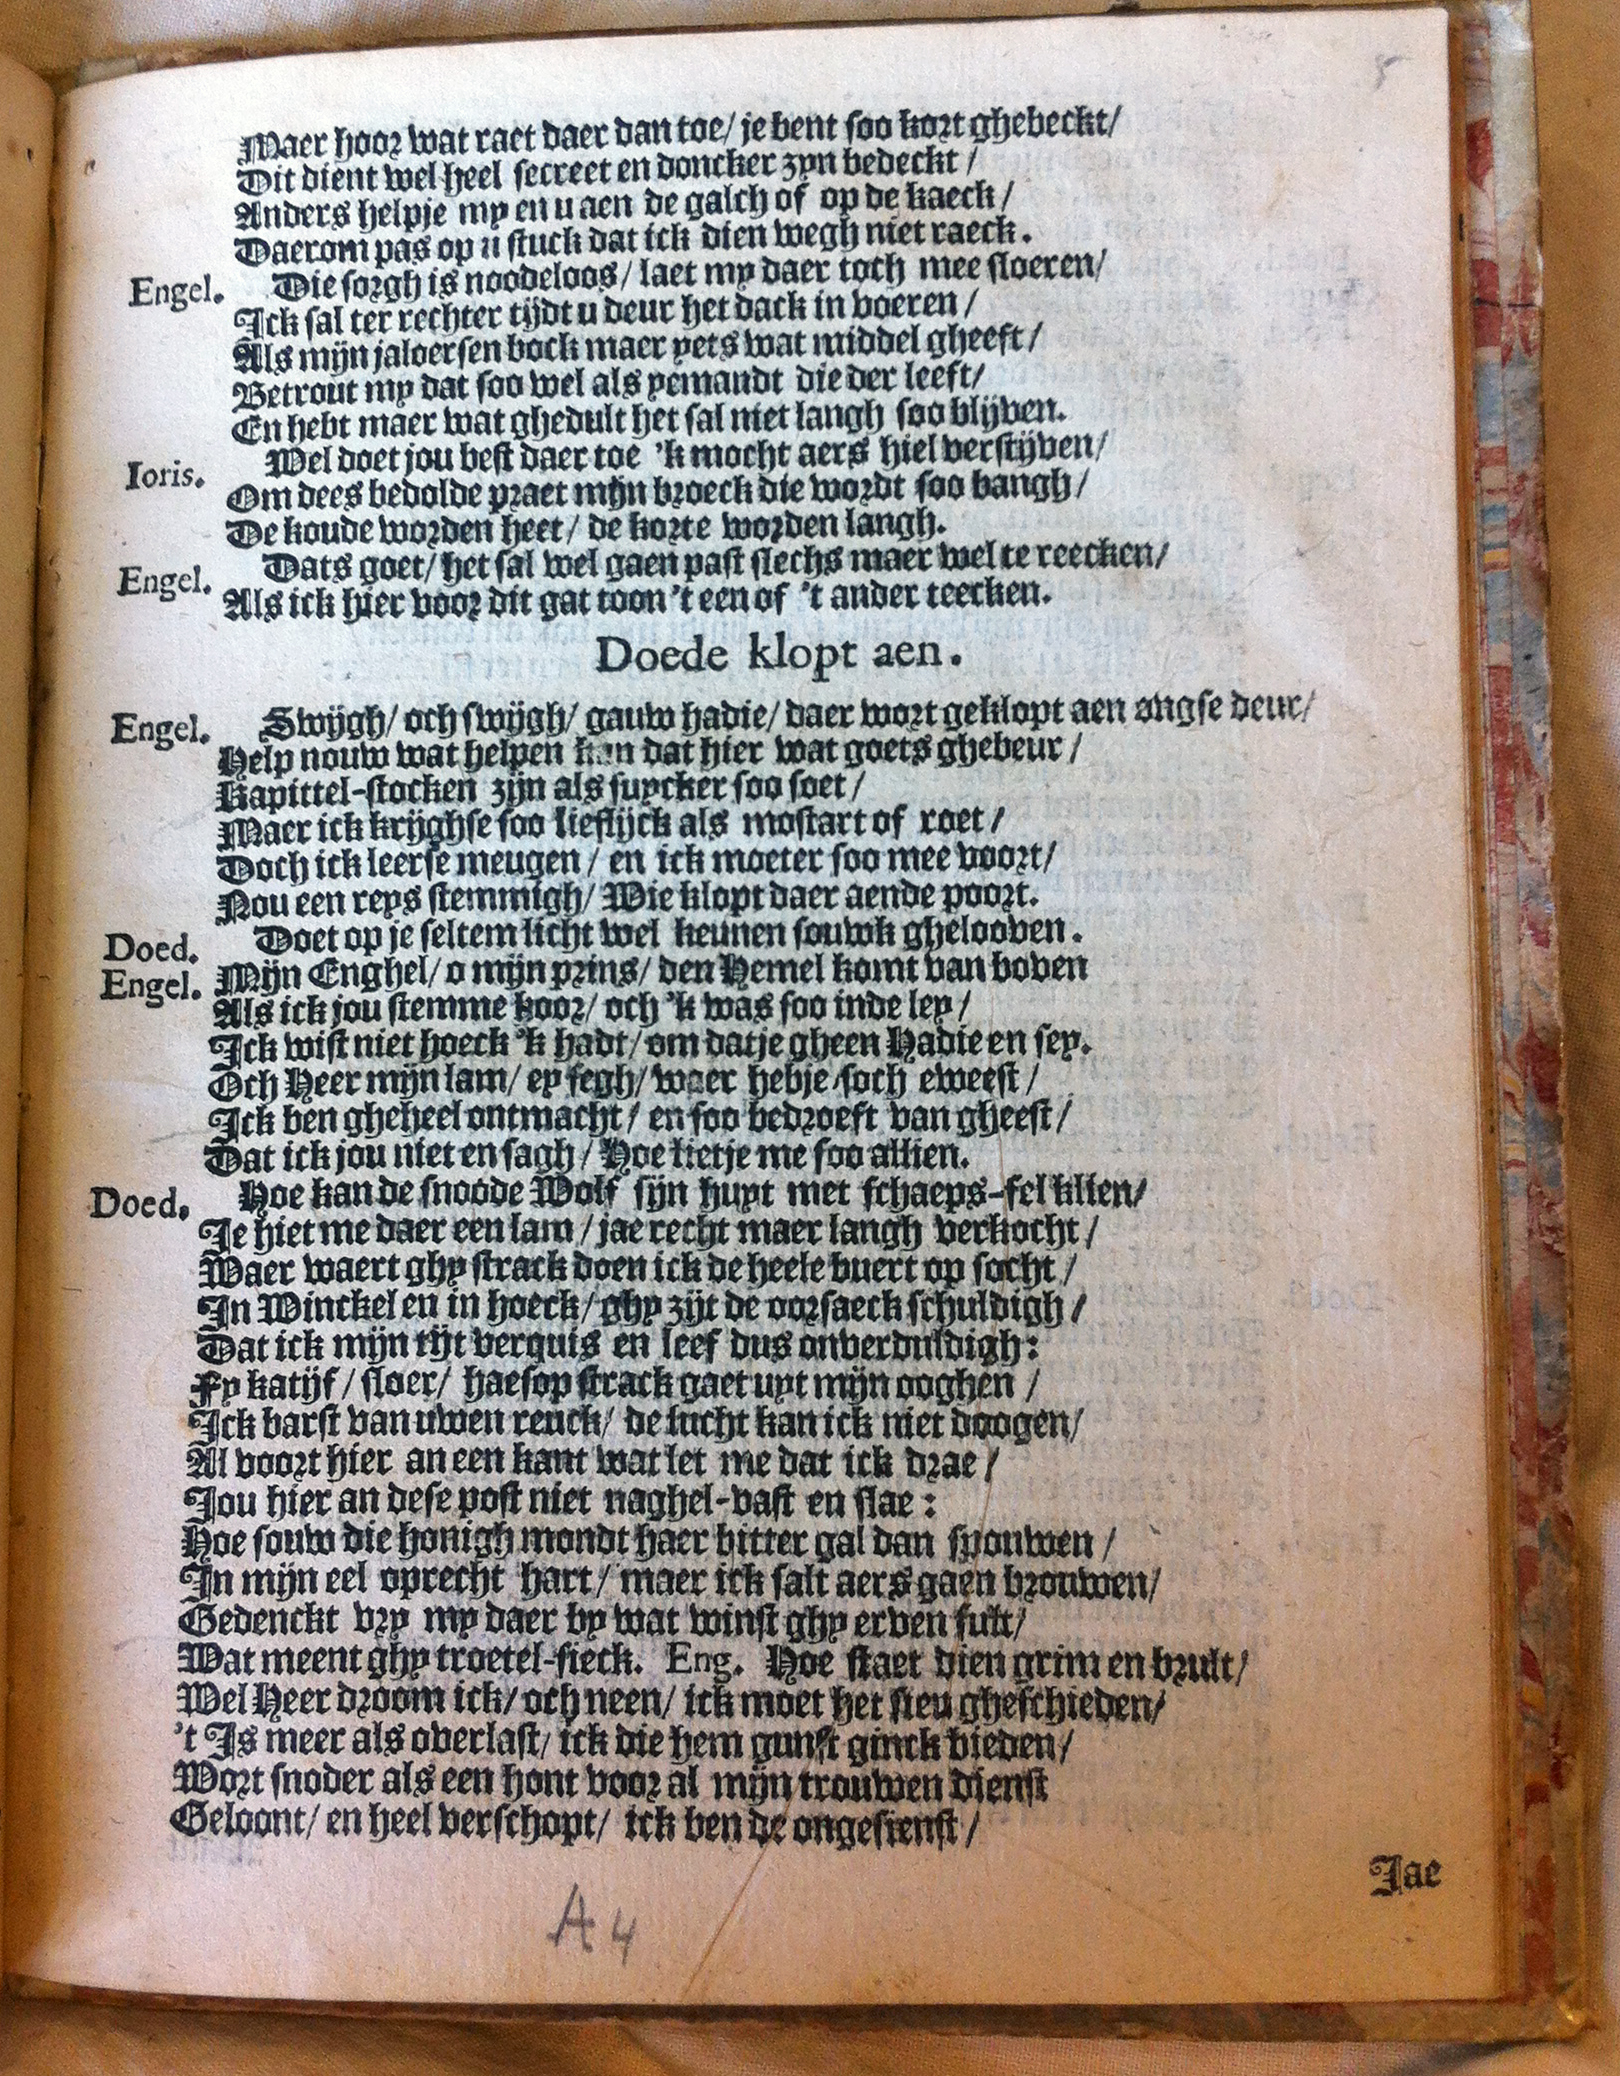 5
Maer hoor wat raet daer dan toe/ je bent soo kort ghebeckt/
Dit dient wel heel secreet en doncker zyn bedeckt/
Anders helpje my en u aen de galch of op de kaeck/
Daerom pas op u stuck dat ick dien wegh niet raeck.
Engel. Die sorgh is noodeloos/ laet my daer toch mee sloeren/
Ick sal ter rechter tijdt u deur het dack in voeren/
Als mijn jaloersen bock maer yets wat middel gheeft/
Betrout my dat soo wel als yemandt die der leeft/
En hebt maer wat ghedult het sal niet langh soo blijven.
Ioris. Wel doet jou best daer toe 'k mocht aers hiel verstijven/
Om dees bedolde praet mijn broeck die wordt soo bangh/
De koude worden heet/ de korte worden langh.
Engel. Dats goet/ het sal wel gaen past slechs maer wel te reecken/
Als ick hier voor dit gat toon 't een of 't ander teecken.
Doede klopt aen.
Engel. Swijgh/ och swijgh/ gauw hadie/ daer wort geklopt aen ongse deur/
Help nouw wat helpen kan dat hier wat goets ghebeur/
Kapittel-stocken zijn als suycker soo soet/
Maer ick krijghse soo lieflijck als mostart of roet/
Doch ick leerse meugen/ en ick moeter soo mee voort/
Nou een reys stemmigh/ Wie klopt daer aende poort.
Doed. Doet op je seltem licht wel keunen souwk ghelooven.
Engel. Mijn Enghel/ o mijn prins/ den Hemel komt van boven
Als ick jou stemme hoor/ och 'k was soo inde ley/
Ick wist niet hoeck 'k hadt/ om datje gheen Hadie en sey.
Och Heer mijn lam/ ey segh/ waer hebje soch eweest/
Ick ben gheheel ontmacht/ en soo bedroeft van gheest/
Dat ick jou niet en sagh/ Hoe lietje me soo allien.
Doed. Hoe kan de snoode Wolf sijn huyt met schaeps-fel klien/
Je hiet me daer een lam/ jae recht maer langh verkocht/
Waer waert ghy strack doen ick de heele buert op socht/
In Winckel en in hoeck/ ghy zijt de oorsaeck schuldigh/
Dat ick mijn tijt verquis en leef dus onverduldigh:
Fy katijf/ sloer/ haesop strack gaet uyt mijn ooghen/
Ick barst van uwen reuck/ de lucht kan ick niet doogen/
Al voort hier an een kant wat let me dat ick drae/
Jou hier an dese post niet naghel-vast en slae:
Hoe souw die honigh mondt haer bitter gal dan spouwen/
In mijn eel oprecht hart/ maer ick salt aers gaen brouwen/
Gedenckt vry my daer by wat winst ghy erven sult/
Wat meent ghy troetel-sieck. Eng. Hoe staet dien grim en brult/
Wel Heer droom ick/ och neen/ ick moet het sieu gheschieden/
't Is meer als overlast/ ick die hem gunst ginck bieden/
Wort snoder als een hont voor al mijn trouwen dienst
Geloont/ en heel verschopt/ ick ben de ongesienst/
Jae
A4